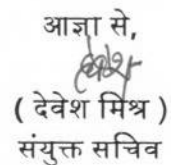 आज्ञा से,
( देवेश मिश्र )
संयुक्त सचिव